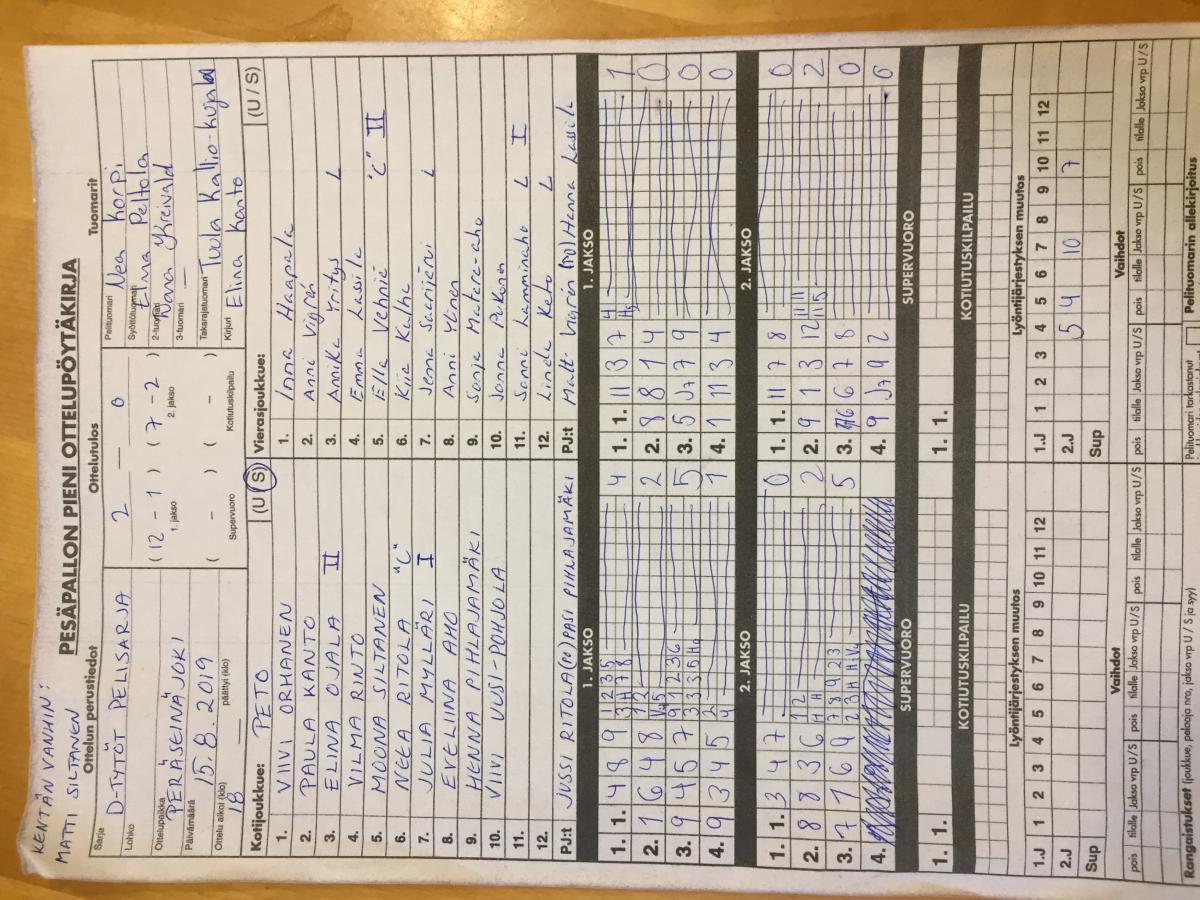 KENTÄN VANHIN:
MATTI SILTANEN
PESÄPALLON PIENI OTTELUPÖYTÄKIRJA
Ottelun perustiedot
Sarja
D-TYTÖT PELISARJA
Lohko
Ottelupaikka
PERÄSEINÄJOKI
Päivämäärä
15.8.2019
Ottelu alkoi (klo) päättyi (klo)
18
Ottelutulos
2 0
(12 - 1) (7 - 2)
1. jakso 2. jakso
( - ) ( - )
Supervuoro Kotiutuskilpailu
Tuomarit
Pelituomari Nea Korpi
Syöttötuomari Elina Peltola
2-tuomari
3-tuomari
Takarajatuomari Tuula Kallio-Kujala
Kirjuri Elina Kanto
Kotijoukkue: PETO (U / S)
1. VIIVI ORHANEN
2. PAULA KANTO
3. ELINA OJALA II
4. VILMA RINTO
5. MOONA SILTANEN
6. NEEA RITOLA "C"
7. JULIA MYLLÄRI I
8. EVELIINA AHO
9. HENNA PIHLAJAMÄKI
10. VIIVI UUSI-POHJOLA
11.
12.
PJ:t JUSSI RITOLA (PO) PASI PIHLAJAMÄKI
Vierasjoukkue: (U / S)
1. Inna Haapala
2. Anni
3. Annika Yritys L
4. Emma Lassila
5. Ella "C" II
6. Kiia
7. Jenna Saarijärvi L
8. Anni
9. Sonja Matero-aho
10. Jonna
11. Sanni Lamminaho L I
12. Linda Keto L
PJ:t (PO) Hanna Lassila
1. JAKSO
1. 1. 4 8 9 4
2. 1 6 4 8 2
3. 9 4 5 7 5
4. 9 3 4 5 1
1. JAKSO
1. 1. 11 3 7 1
2. 8 8 1 4 0
3. 5 J7 7 9 0
4. 1 11 3 4 0
2. JAKSO
1. 1. 3 4 7 0
2. 8 8 3 6 2
3. 7 1 6 9 5
4.
2. JAKSO
1. 1. 11 7 8 0
2. 9 1 3 12 2
3. 6 6 7 8 0
4. 9 J7 9 2 0
SUPERVUORO
1. 1.
SUPERVUORO
1. 1.
KOTIUTUSKILPAILU
KOTIUTUSKILPAILU
Lyöntijärjestyksen muutos
1 2 3 4 5 6 7 8 9 10 11 12
1.J
2.J
Sup
Lyöntijärjestyksen muutos
1 2 3 4 5 6 7 8 9 10 11 12
1.J
2.J 5 4 10 7
Sup
Vaihdot
pois tilalle Jakso vrp U / S pois tilalle Jakso vrp U / S pois tilalle Jakso vrp U / S
Vaihdot
pois tilalle Jakso vrp U / S pois tilalle Jakso vrp U / S pois tilalle Jakso vrp U / S
Rangaistukset (joukkue, pelaaja nro, jakso, vrp / U / S ja syy)
Pelituomari tarkastanut
Pelituomarin allekirjoitus